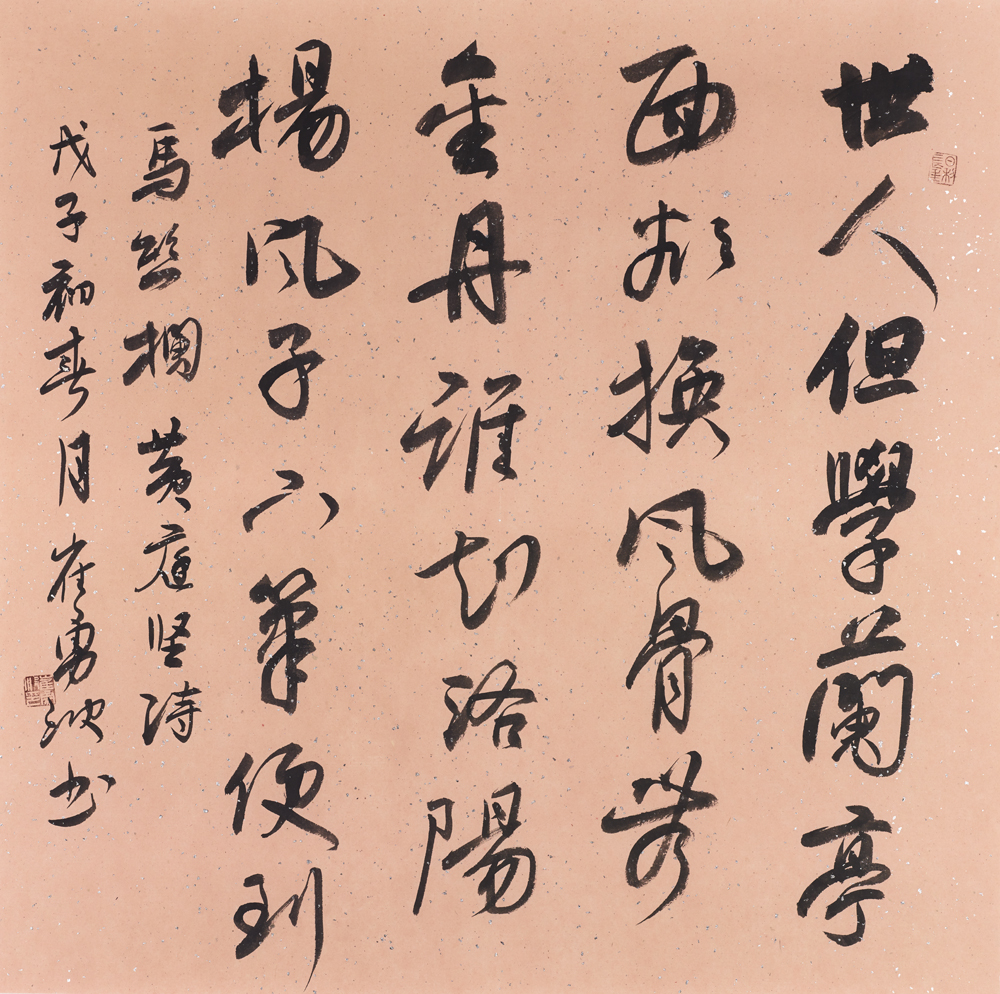 世人但學蘭亭
面欲換风骨無
金丹誰知洛陽
楊风子下筆便到
烏絲欄 黄庭坚诗
戊子初春月崔勇书